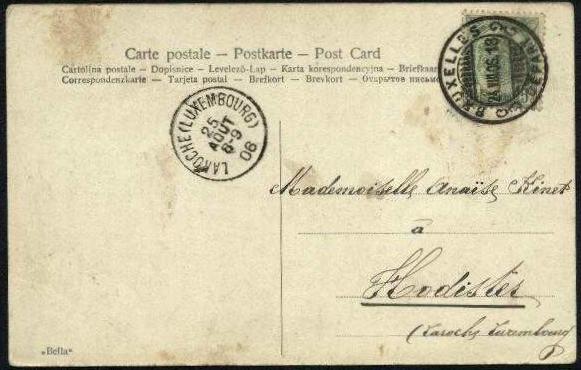 Carte postale – Postkarte – Post Card
Cartolina postale – Dopisnice – Levelező-Lap – Karta korespondencyjna – Briefkaart
Correspondenzkarte – Tarjeta postal – Brefkort – Brevkort – Открытое письмо
BRUXELLES
LAROCHE (LUXEMBOURG)
25
AOUT
8-9
06
Mademoiselle Anaïse Kinet
à
Hodister
(Laroche Luxembourg)
„Bella“